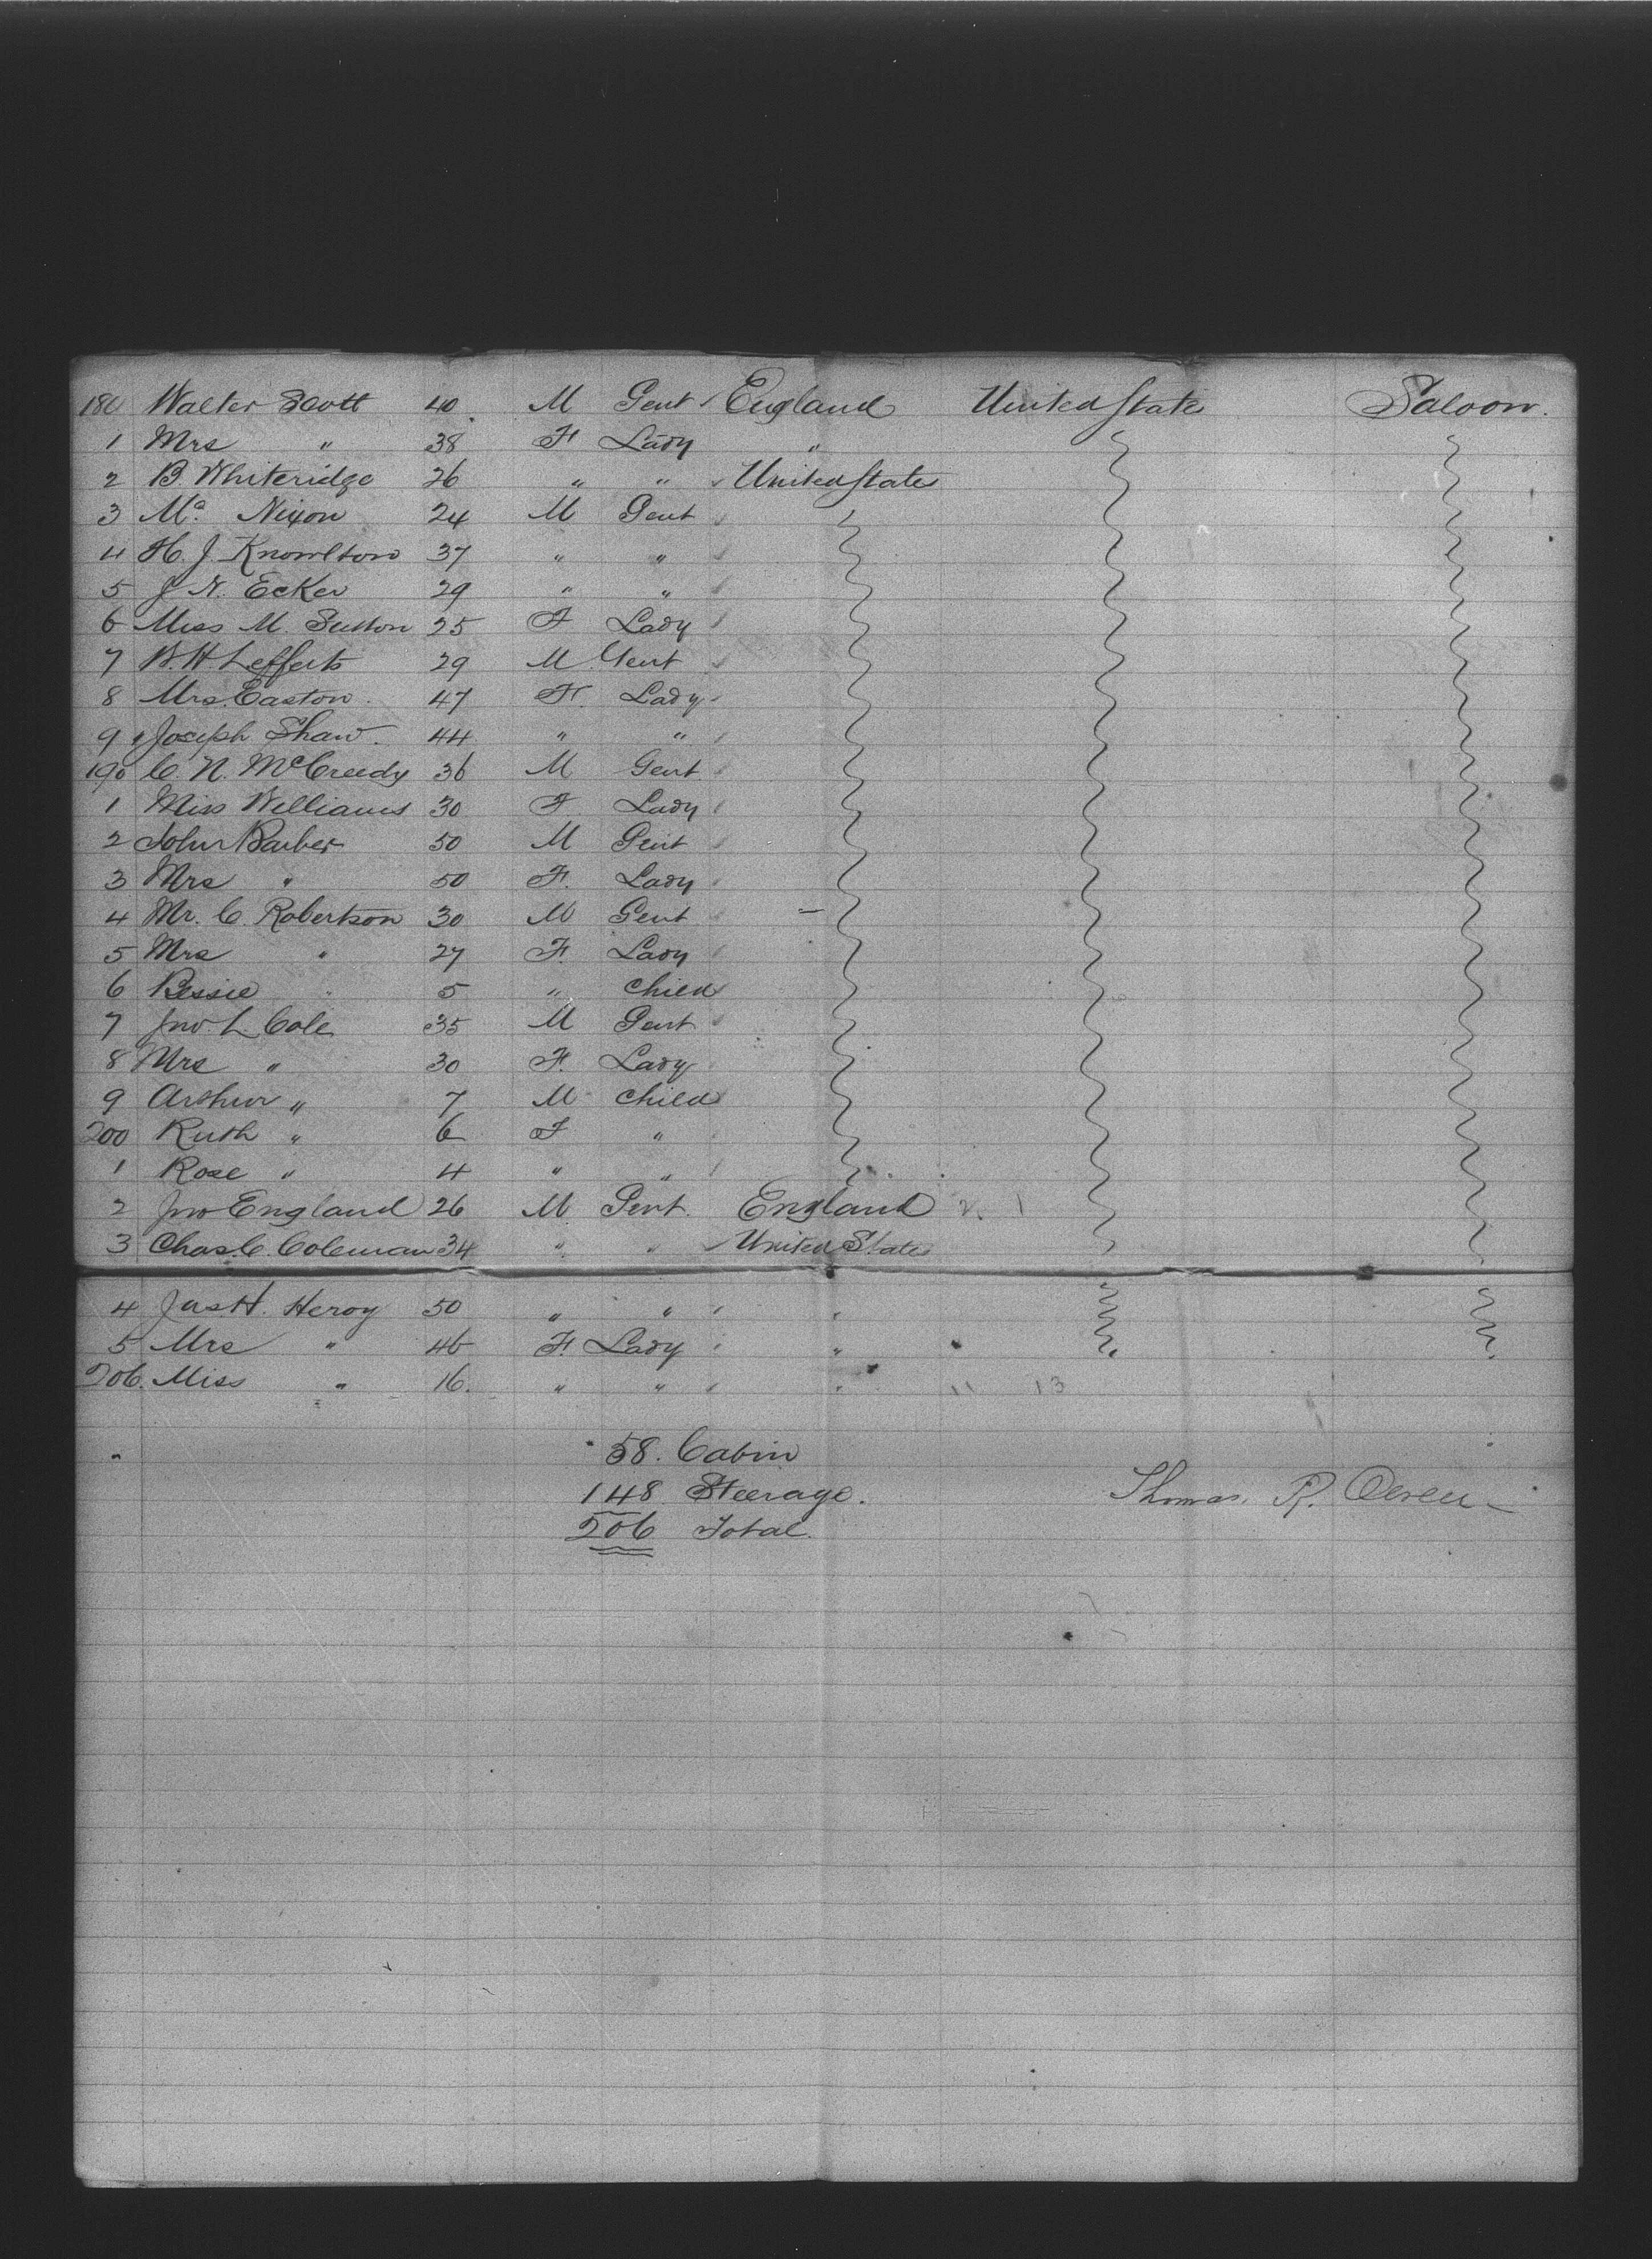 180 Walter Scott 40 M Gent England United State Saloon.
1 Mrs " 38 F Lady "
2 B. Whiteridge 26 " " United State
3 Mc Nixon 24 M Gent
4 H. J. Knowlton 37 " "
5 J. N. Ecker 29 " "
6 Miss M. Sutton 25 F Lady
7 W. H. Lefferts 29 M Gent
8 Mrs. Easton 47 F. Lady
9 Joseph Shaw 44 " "
190 C. N. McCreedy 36 M Gent
1 Miss Williams 30 F Lady
2 John Barber 50 M Gent
3 Mrs " 50 F. Lady
4 Mr. C. Robertson 30 M Gent
5 Mrs " 27 F. Lady
6 Bessie " 5 " Child
7 Jno. L. Cole 35 M Gent
8 Mrs " 30 F. Lady
9 Arthur " 7 M Child
200 Ruth " 6 F "
1 Rose " 4 " "
2 Jno England 26 M Gent. England 2. 1
3 Chas. C. Coleman 34 " " United State
4 Jas H. Heroy 50 " " "
5 Mrs " 46 F. Lady "
206. Miss " 16. " " " 11 13
58. Cabin
148 Steerage.
Thomas. R.
206 Total.